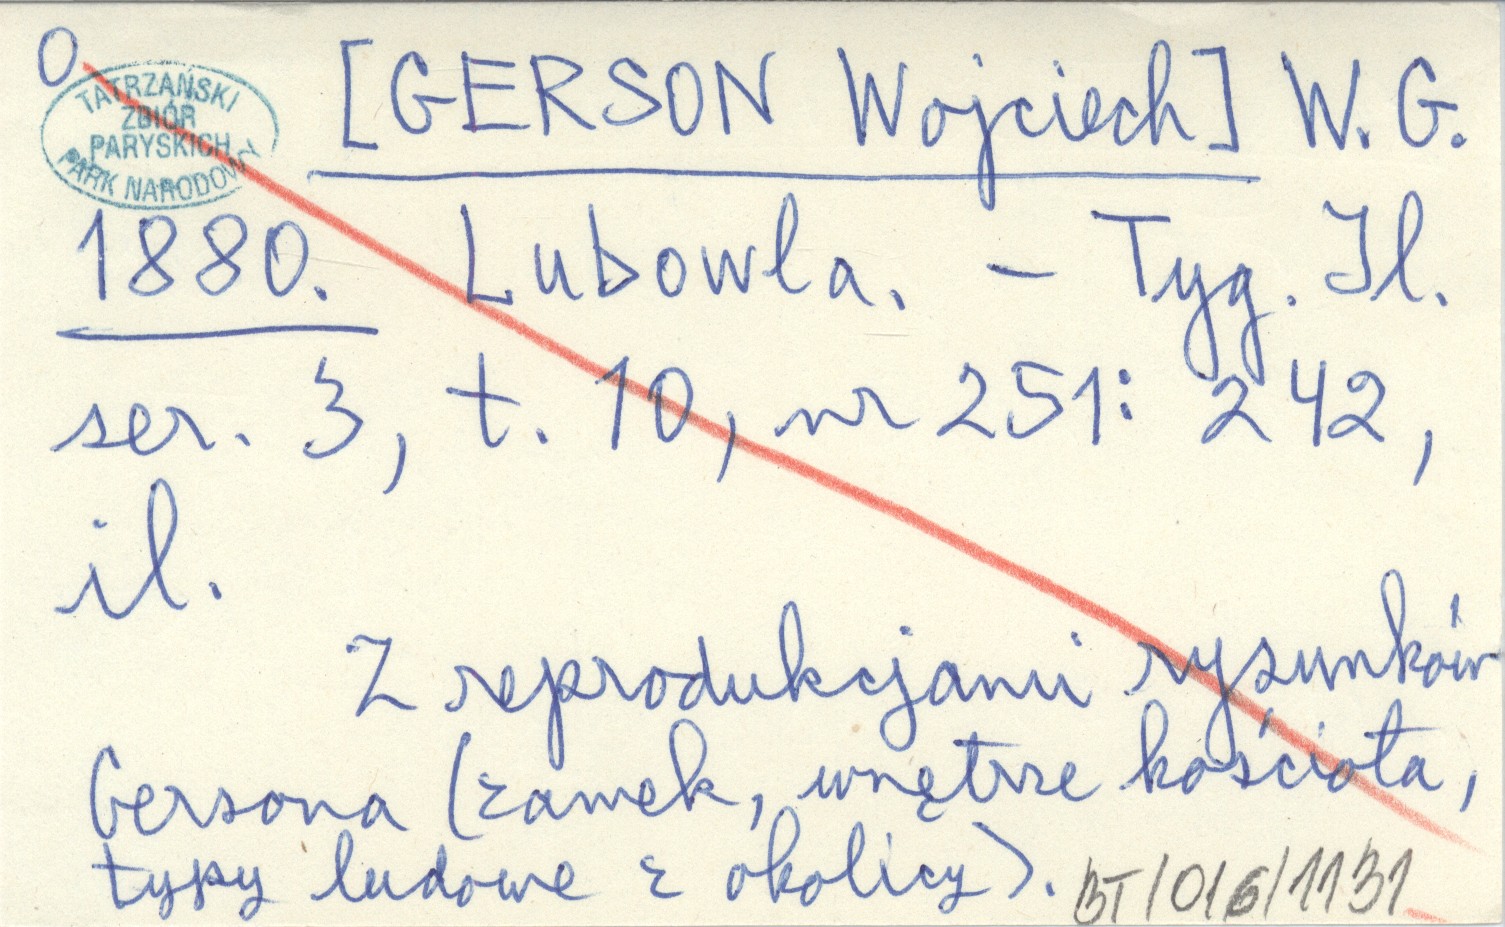 O
TATRZAŃSKI
ZBIÓR
PARYSKICH
PARK NARODOWY
[GERSON Wojciech] W. G.
1880. Lubowla. – Tyg. Il.
ser. 3, t. 10, nr 251: 242,
il.
Z reprodukcjami rysunków
Gersona (zamek, wnętrze kościoła,
typy ludowe z okolicy).
BT/016/1131